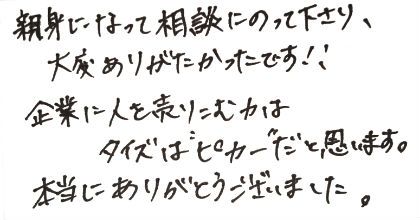 親身になって相談にのって下さり、
大変ありがたかったです!!
企業に人を売りこむ力は
タイズは"ピカ一"だと思います。
本当にありがとうございました。